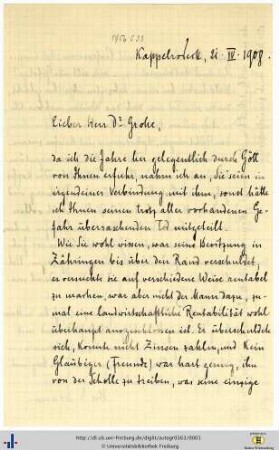 Kappelrodeck, 21. IV. 1908.
Lieber Herr Dr. Grohe,
da ich die Jahre her gelegentlich durch Gött
von Ihnen erfuhr, nahm ich an, Sie seien in
irgendeiner Verbindung mit ihm, sonst hätte
ich Ihnen seinen trotz aller vorhandenen Ge-
fahr überraschenden Tod mitgeteilt.
Wie Sie wohl wissen, war seine Besitzung in
Zähringen bis über den Rand verschuldet,
er versuchte sie auf verschiedene Weise rentabel
zu machen, war aber nicht der Mann dazu, zu-
mal eine landwirtschaftliche Rentabilität wohl
überhaupt ausgeschlossen ist. Er überschuldete
sich, konnte nicht Zinsen zahlen, und kein
Gläubiger (Freunde) war hart genug, ihn
von der Scholle zu treiben, was seine einzige
http://dl.ub.uni-freiburg.de/diglit/autogr0363/0001
© Universitätsbibliothek Freiburg